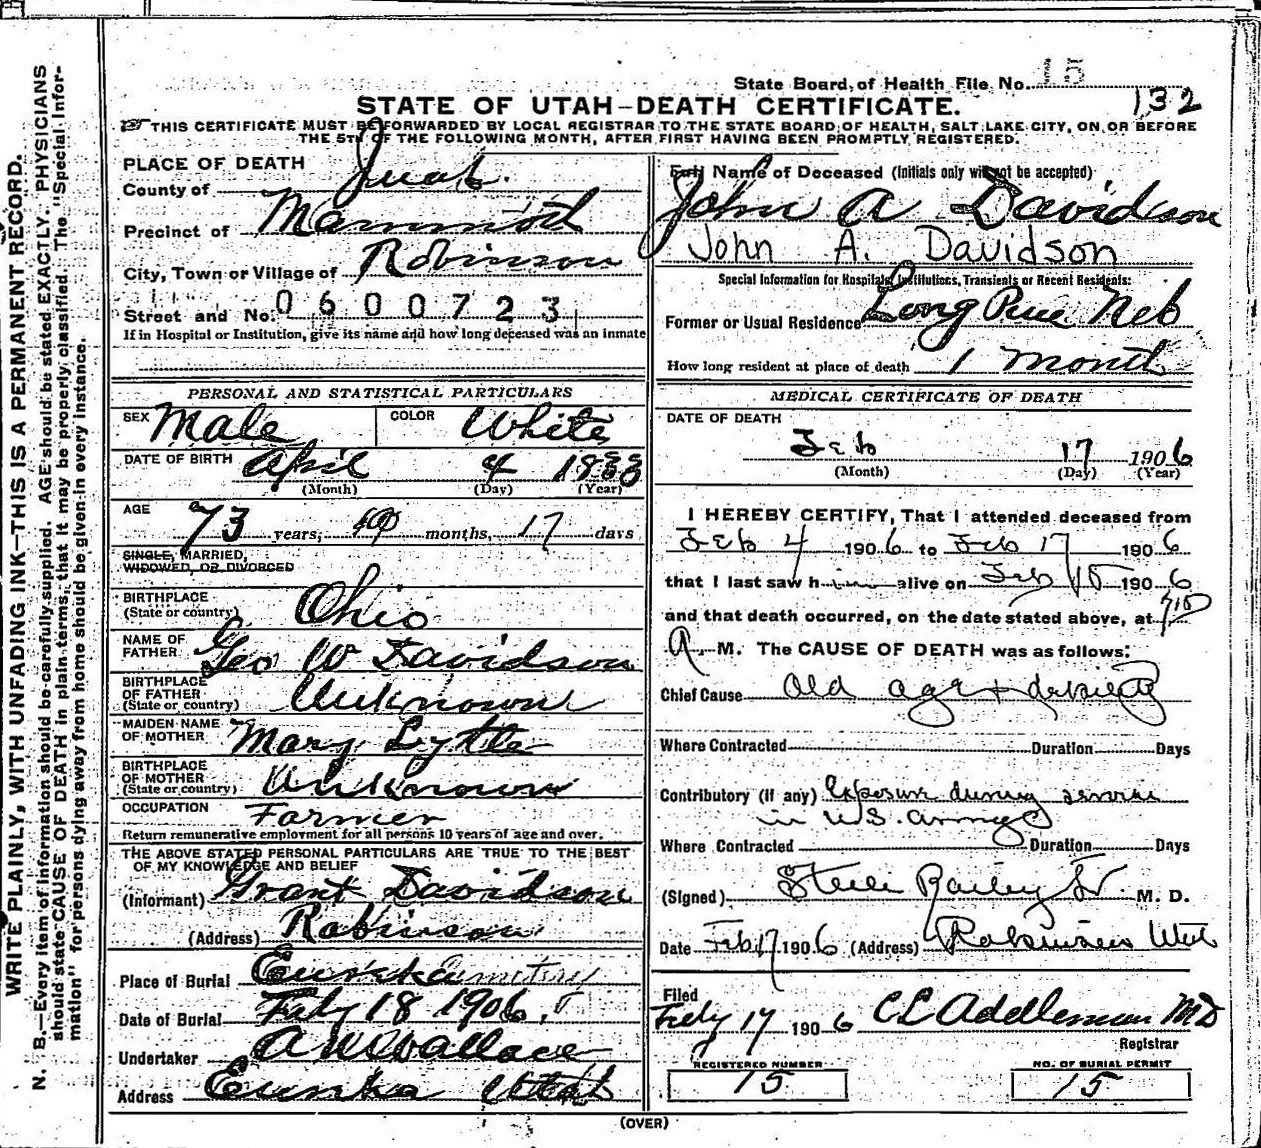 WRITE PLAINLY, WITH UNFADING INK—THIS IS A PERMANENT RECORD.
N. B.—Every item of information should be carefully supplied. AGE should be stated EXACTLY. PHYSICIANS
should state CAUSE OF DEATH in plain terms, that it may be properly classified. The "Special Infor-
mation" for persons dying away from home should be given in every instance.
State Board of Health File No. 15
132
STATE OF UTAH—DEATH CERTIFICATE.
☞ THIS CERTIFICATE MUST BE FORWARDED BY LOCAL REGISTRAR TO THE STATE BOARD OF HEALTH, SALT LAKE CITY, ON OR BEFORE
THE 5TH OF THE FOLLOWING MONTH, AFTER FIRST HAVING BEEN PROMPTLY REGISTERED.
PLACE OF DEATH
County of Juab.
Precinct of Mammoth
City, Town or Village of Robinson
Street and No. 0600723
If in Hospital or Institution, give its name and how long deceased was an inmate
PERSONAL AND STATISTICAL PARTICULARS
SEX Male COLOR White
DATE OF BIRTH April 4 1833
(Month) (Day) (Year)
AGE 73 years, months, 17 days
SINGLE, MARRIED,
WIDOWED, OR DIVORCED
BIRTHPLACE
(State or country) Ohio
NAME OF
FATHER Geo W Davidson
BIRTHPLACE
OF FATHER
(State or country) Unknown
MAIDEN NAME
OF MOTHER Mary Lytle
BIRTHPLACE
OF MOTHER
(State or country) Unknown
OCCUPATION Farmer
Return remunerative employment for all persons 10 years of age and over.
THE ABOVE STATED PERSONAL PARTICULARS ARE TRUE TO THE BEST
OF MY KNOWLEDGE AND BELIEF
(Informant) Grant Davidson
(Address) Robinson
Place of Burial Eureka Cemetery
Date of Burial Feby 18 1906.
Undertaker A W Wallace
Address Eureka Utah
Full Name of Deceased (Initials only will not be accepted)
John A Davidson
John A. Davidson
Special Information for Hospitals, Institutions, Transients or Recent Residents:
Former or Usual Residence Long Pine Neb
How long resident at place of death 1 month
MEDICAL CERTIFICATE OF DEATH
DATE OF DEATH
Feb 17 1906
(Month) (Day) (Year)
I HEREBY CERTIFY, That I attended deceased from
Feb 4 1906 to Feb 17 1906
that I last saw him alive on Feb 1906
and that death occurred, on the date stated above, at 710
A. M. The CAUSE OF DEATH was as follows:
Chief Cause Old age + debility
Where Contracted Duration Days
Contributory (if any) Exposure during service
in U.S. army
Where Contracted Duration Days
(Signed) Steele Bailey Jr M. D.
Date Feb 17 1906 (Address) Robinson Utah
Filed
Feby 17 1906 C E Addleman MD
Registrar
REGISTERED NUMBER
15
NO. OF BURIAL PERMIT
15
(OVER)